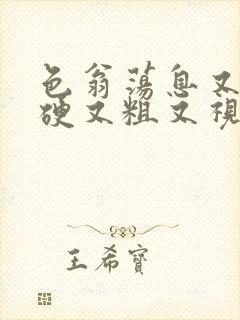 色翁荡息又
硬又粗又视
王希寶